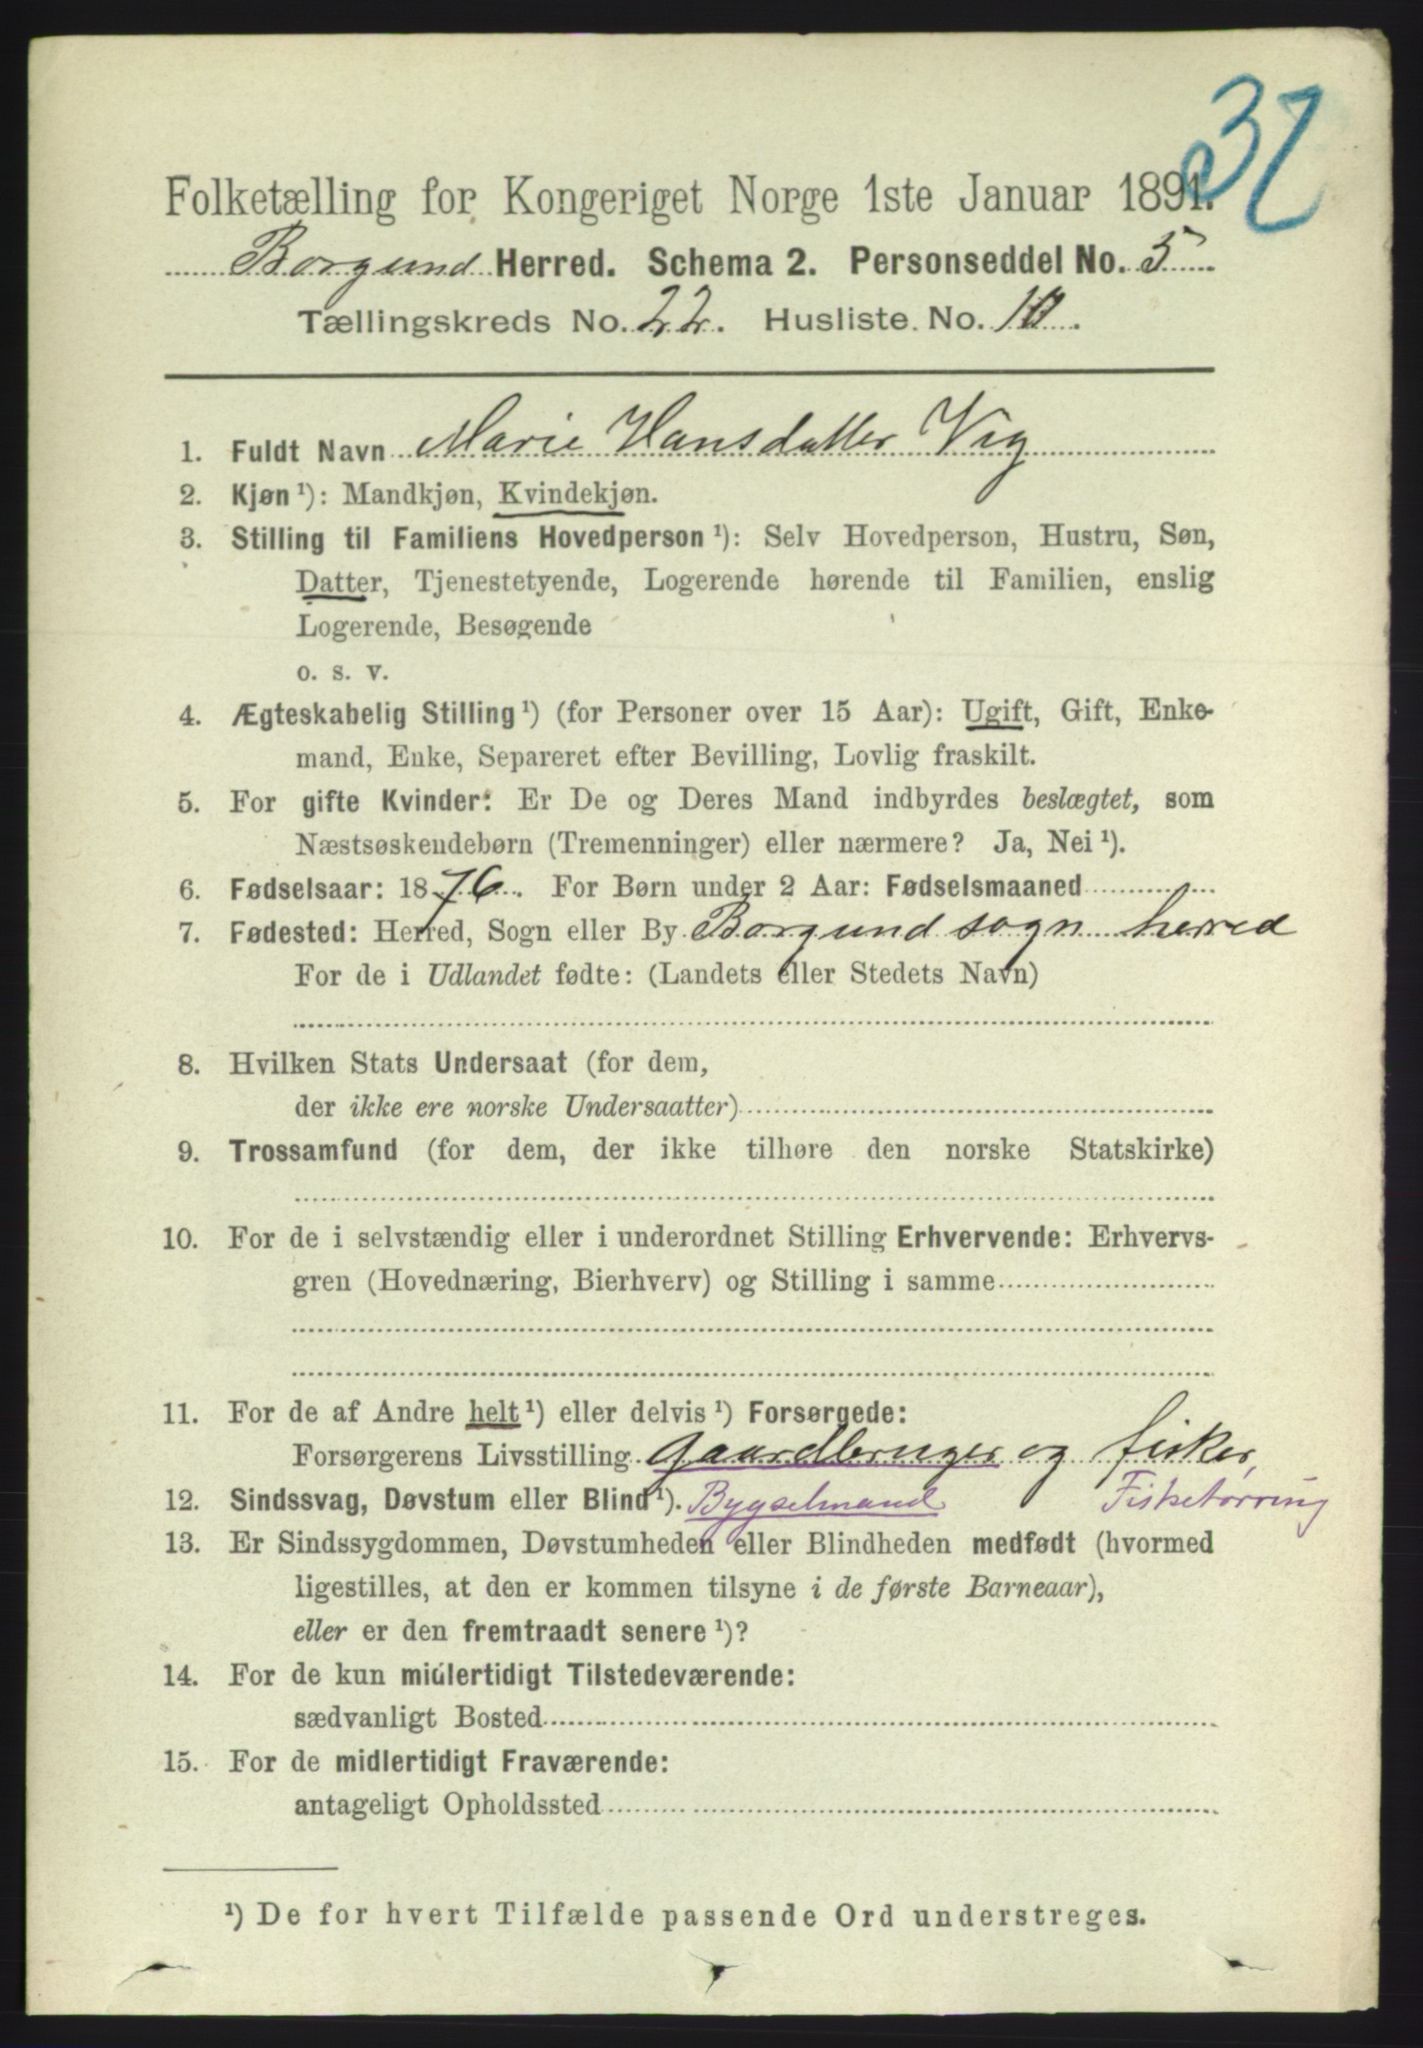 32
Folketælling for Kongeriget Norge 1ste Januar 1891.
Borgund Herred. Schema 2. Personseddel No. 5
Tællingskreds No. 22. Husliste No. 10.
1. Fuldt Navn Marie Hansdatter Vig
2. Kjøn ¹): Mandkjøn, Kvindekjøn.
3. Stilling til Familiens Hovedperson ¹): Selv Hovedperson, Hustru, Søn,
Datter, Tjenestetyende, Logerende hørende til Familien, enslig
Logerende, Besøgende
o. s. v.
4. Ægteskabelig Stilling ¹) (for Personer over 15 Aar): Ugift, Gift, Enke-
mand, Enke, Separeret efter Bevilling, Lovlig fraskilt.
5. For gifte Kvinder: Er De og Deres Mand indbyrdes beslægtet, som
Næstsøskendebørn (Tremenninger) eller nærmere? Ja, Nei ¹).
6. Fødselsaar: 1876. For Børn under 2 Aar: Fødselsmaaned
7. Fødested: Herred, Sogn eller By Borgund sogn herred
For de i Udlandet fødte: (Landets eller Stedets Navn)
8. Hvilken Stats Undersaat (for dem,
der ikke ere norske Undersaatter)
9. Trossamfund (for dem, der ikke tilhøre den norske Statskirke)
10. For de i selvstændig eller i underordnet Stilling Erhvervende: Erhvervs-
gren (Hovednæring, Bierhverv) og Stilling i samme
11. For de af Andre helt ¹) eller delvis ¹) Forsørgede:
Forsørgerens Livsstilling Gaardbruger og fisker,
12. Sindssvag, Døvstum eller Blind ¹). Bygselmand Fisketorring
13. Er Sindssygdommen, Døvstumheden eller Blindheden medfødt (hvormed
ligestilles, at den er kommen tilsyne i de første Barneaar),
eller er den fremtraadt senere ¹)?
14. For de kun midlertidigt Tilstedeværende:
sædvanligt Bosted
15. For de midlertidigt Fraværende:
antageligt Opholdssted
¹) De for hvert Tilfælde passende Ord understreges.